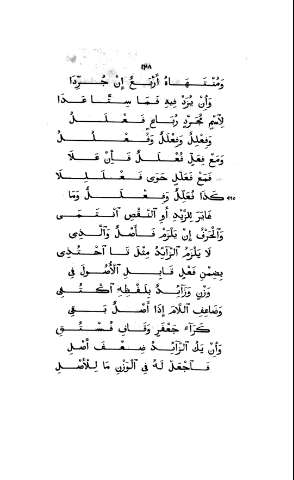 ١٤٨
وَمُنْتَهَاهُ أَرْبَعٌ إِنْ جُرِّدَا
وَإِنْ يُزَدْ فِيهِ فَمَا سِتًّا عَدَا
لِاِسْمٍ مُجَرَّدٍ رُبَاعٍ فَعْلَلُ
وَفِعْلِلٌ وَفِعْلَلٌ وَفُعْلُلُ
وَمَعْ فِعَلٍّ فُعْلَلٌ فَإِنْ عَلَا
فَمَعْ فَعَلَّلٍ حَوَى فَعْلَلِلَا
٩٢٥ كَذَا فُعَلِّلٌ وَفِعْلَلٌّ وَمَا
غَايَرَ لِلزَّيْدِ أَوِ ٱلنَّقْصِ ٱنْتَمَى
وَٱلْحَرْفُ إِنْ يَلْزَمْ فَأَصْلٌ وَٱلَّذِي
لَا يَلْزَمُ ٱلزَّائِدُ مِثْلُ تَا ٱحْتُذِي
بِضِمْنِ فِعْلٍ قَابِلِ ٱلْأُصُولَ فِي
وَزْنٍ وَزَائِدٌ بِلَفْظِهِ ٱكْتُفِي
وَضَاعِفِ ٱللَّامَ إِذَا أَصْلٌ بَقِي
كَرَاءِ جَعْفَرٍ وَقَافِ فُسْتُقِ
وَإِنْ يَكُ ٱلزَّائِدُ ضِعْفَ أَصْلِ
فَٱجْعَلْ لَهُ فِي ٱلْوَزْنِ مَا لِلْأَصْلِ